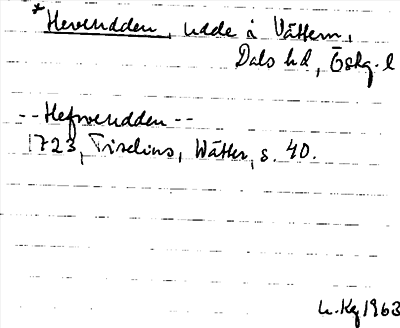 *Heverudden, udde i Vättern,
Dals hd, Öskg. l
-- Hefwerudden --
1723, Tiselius, Wätter, s. 40.
1963